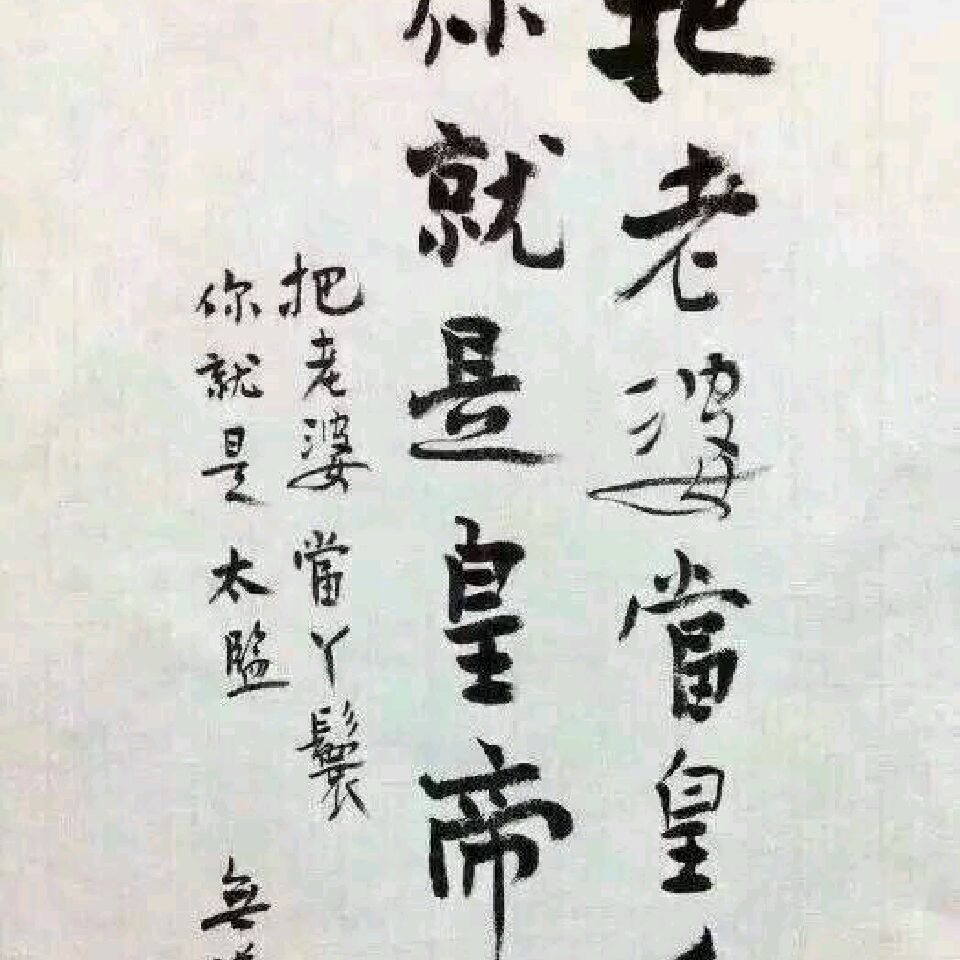 把老婆當皇
你就是皇帝
把老婆當丫鬟
你就是太監
無